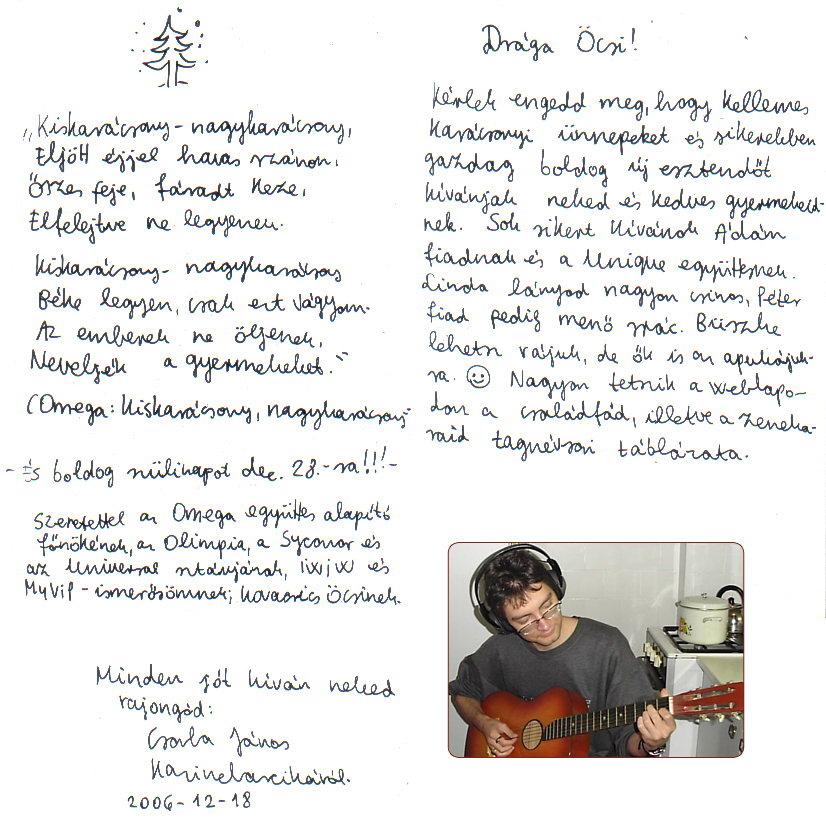 „Kiskarácsony - nagykarácsony,
Eljött éjjel havas szánon.
Őszes feje, fáradt keze,
Elfelejtve ne legyenek.
Kiskarácsony - nagykarácsony
Béke legyen, csak ezt vágyom.
Az emberek ne öljenek,
Neveljék a gyermekeket."
(Omega: Kiskarácsony, nagykarácsony)
- És boldog szülinapot dec. 28.-ra!!! -
Szeretettel az Omega együttes alapító
főnökének, az Olimpia, a Syconor és
az Universal sztárjának, iwiw és
MyVip - ismerősömnek; Kovacsics Öcsinek.
Minden jót kíván neked
rajongód:
Csorba János
Kazincbarcikáról.
2006-12-18
Drága Öcsi!
Kérlek engedd meg, hogy kellemes
karácsonyi ünnepeket és sikerekben
gazdag boldog új esztendőt
kívánjak neked és kedves gyermekeid-
nek. Sok sikert kívánok Ádám
fiadnak és a Unique együttesnek.
Linda lányod nagyon csinos, Péter
fiad pedig menő srác. Büszke
lehetsz rájuk, de ők is az apukájuk-
ra. ☺ Nagyon tetszik a weblapo-
don a családfád, illetve a zeneka-
raid tagnévsori táblázata.